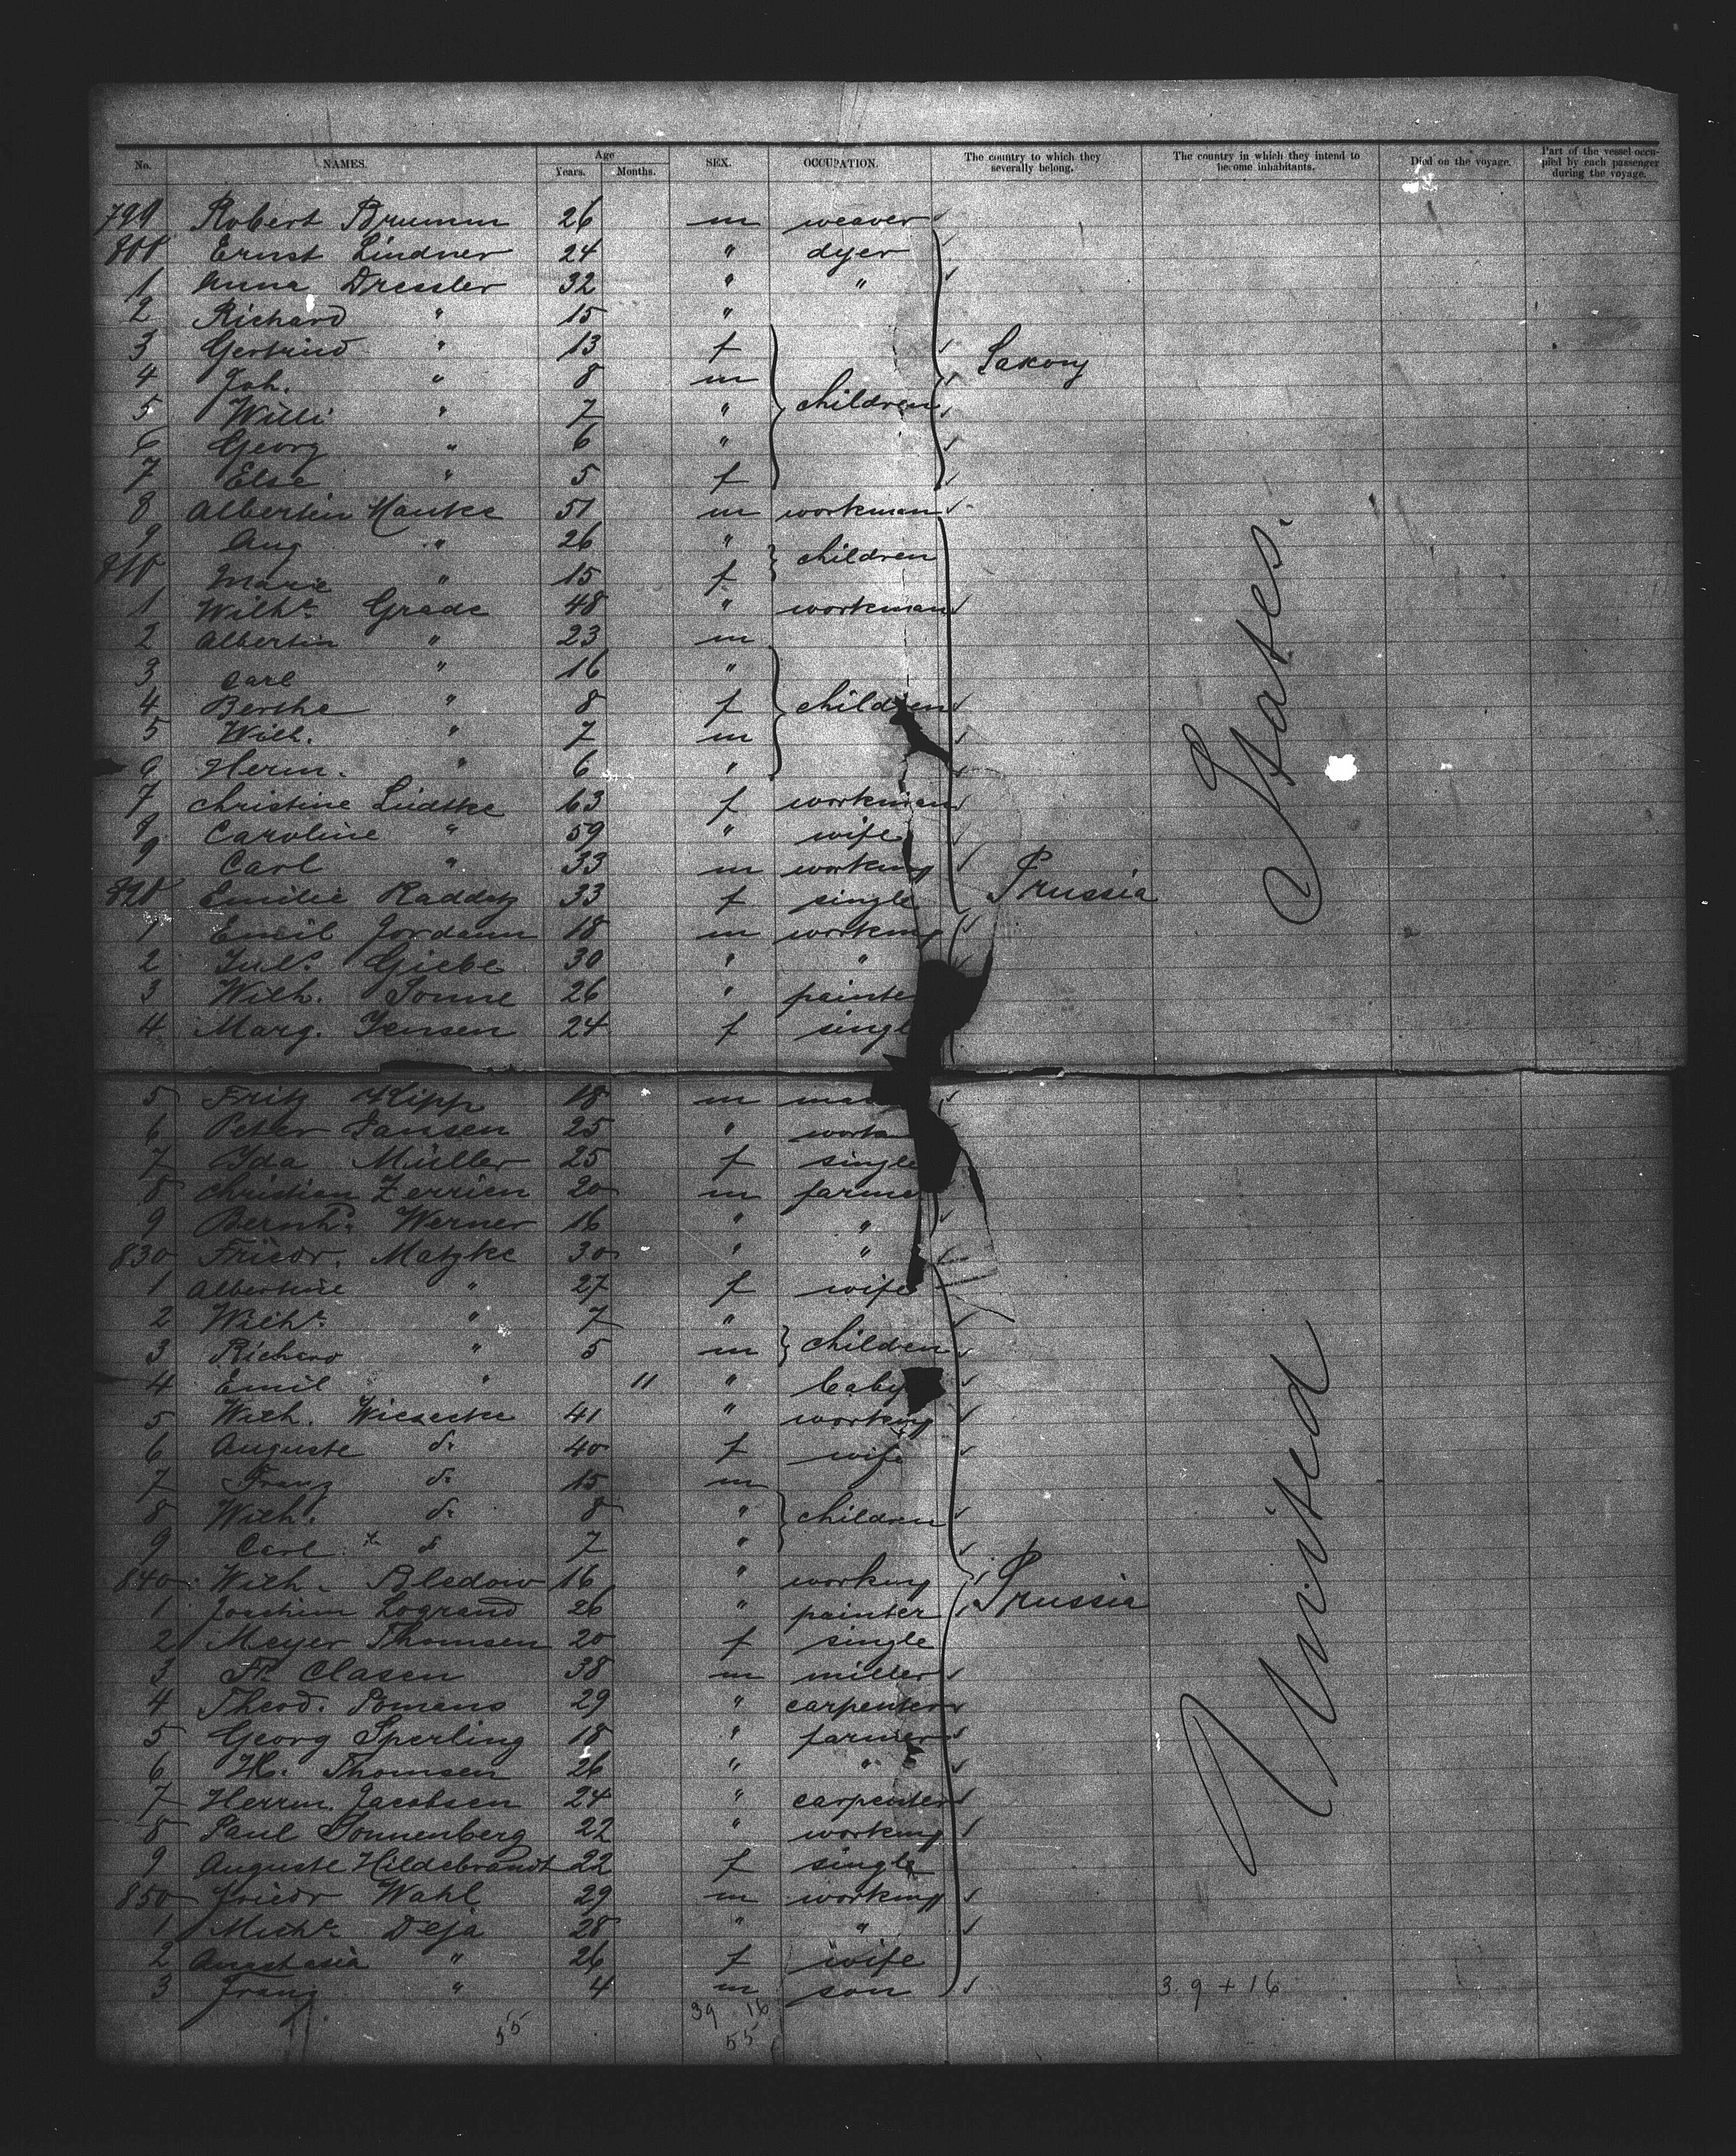 No. NAMES. Age Years. Months. SEX. OCCUPATION. The country to which they severally belong. The country in which they intend to become inhabitants. Died on the voyage. Part of the vessel occupied by each passenger during the voyage.
799 Robert Brumm 26 m weaver
800 Ernst Lindner 24 " dyer
1 Anna Dressler 32 " "
2 Richard " 15 "
3 Gertrud " 13 f
4 Joh. " 8 m Saxony
5 Willi " 7 " children
6 Georg " 6 "
7 Else " 5 f
8 Albertin Manke 51 m workman
9 Aug " 26 " children
810 Marie " 15 f
1 Wilh. Grade 48 " workman
2 Albertin " 23 m
3 Carl " 16 "
4 Bertha " 8 f children
5 Wilh. " 7 m
6 Herm. " 6 "
7 Christine Lüdtke 63 f workman
8 Caroline " 59 " wife
9 Carl " 33 m working
820 Emilie Raddatz 33 f single Prussia
1 Emil Jordann 18 m working
2 Juls. Giebe 30 " "
3 Wilh. Sonne 26 " painte
4 Marg. Jensen 24 f singl
5 Fritz Kipp 18 m
6 Peter Jansen 25 " work
7 Ida Müller 25 f single
8 Christian Zerrien 20 m farme
9 Bernh. Werner 16 " "
830 Friedr. Matzke 30 " "
1 Albertine " 27 f wife
2 Wilh. " 7 "
3 Richard " 5 m children
4 Emil " 11 " baby
5 Wilh. Wiesecke 41 " working
6 Auguste do 40 f wife
7 Franz do 15 m
8 Wilh. do 8 " children
9 Carl do 7 "
840 Wilh. Bledow 16 " working
1 Joachim Logrand 26 " painter Prussia
2 Meyer Thomsen 20 f single
3 Fr. Clasen 38 m miller
4 Theod. Pomens 29 " carpenter
5 Georg Sperling 18 " farmer
6 H. Thomsen 26 " "
7 Herrm. Jacobsen 24 " carpenter
8 Paul Sonnenberg 22 " working
9 Auguste Hildebrandt 22 f single
850 Friedr Wahl 29 m working
1 Mich. Deja 28 " "
2 Anastasia " 26 f wife
3 Franz " 4 m son 39 + 16
39 16
55 55
United States.